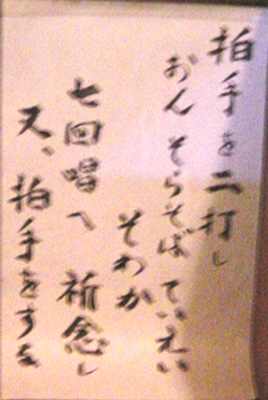 拍手を二打し
おん そらそば ていえい
そわか
七回唱へ 祈念し
又、拍手をする